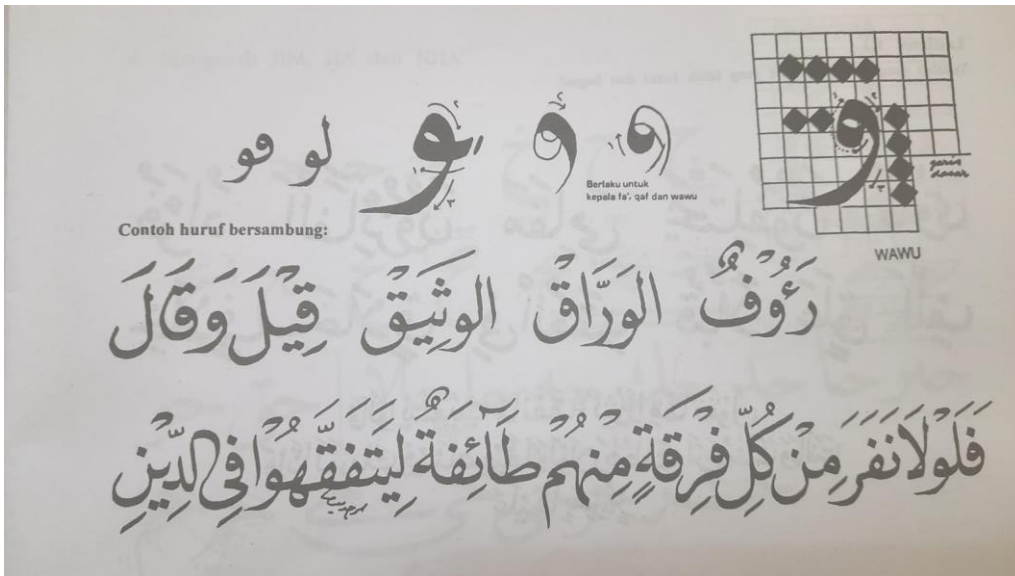 فو لو و و و
Berlaku untuk
kepala fa', qaf dan wawu
garis
dasar
WAWU
Contoh huruf bersambung:
رَءُوْفٌ الوَرَّاقْ الوثِيَقْ قِيْلَ وَقَالَ
فَلَوْلَا نَفَرَ مِنْ كُلِّ فِرْقَةٍ مِنْهُمْ طَآئِفَةٌ لِيَتَفَقَّهُوْا فِى الدِّيْنِ